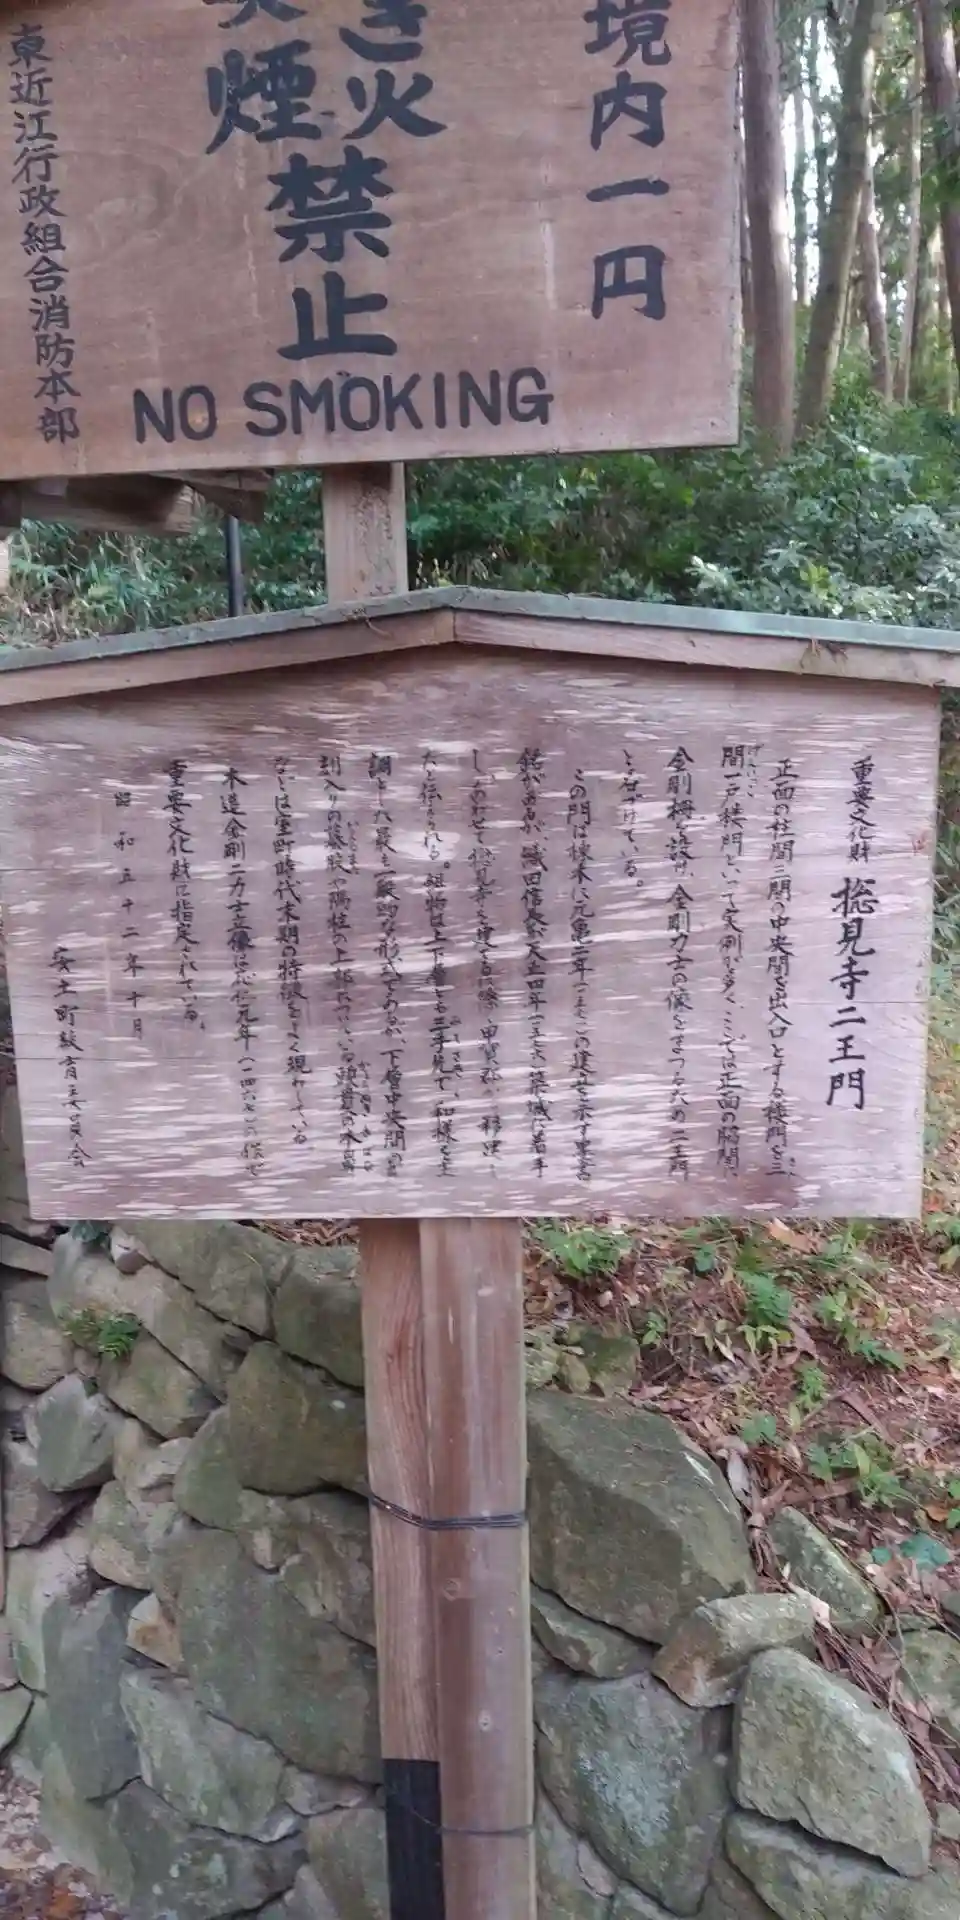 境内一円
き火
煙
禁止
NO SMOKING
東近江行政組合消防本部
重要文化財 摠見寺二王門
正面の柱間三間の中央間を出入口とする楼門を三
間一戸楼門といって実例が多く、ここでは正面の脇間に
金剛柵を設け、金剛力士の像をまつるため二王門
と名づけている。
この門は棟木に元亀二年(一五七一)の建立を示す墨書
銘があるが、織田信長が天正四年(一五七六)築城に着手
しあわせて摠見寺を建てる際、甲賀郡から移建し
たと伝えられる。組物は上下層とも三手先で、和様を主
調とした最も一般的な形式であるが、下層中央間の
刳入りの蟇股や隅柱の上部についている頭貫の木鼻
などは室町時代末期の特徴をよく現わしている
木造金剛二力士立像は応仁元年(一四六七)の作で
重要文化財に指定されている。
昭和五十二年十月
安土町教育委員会